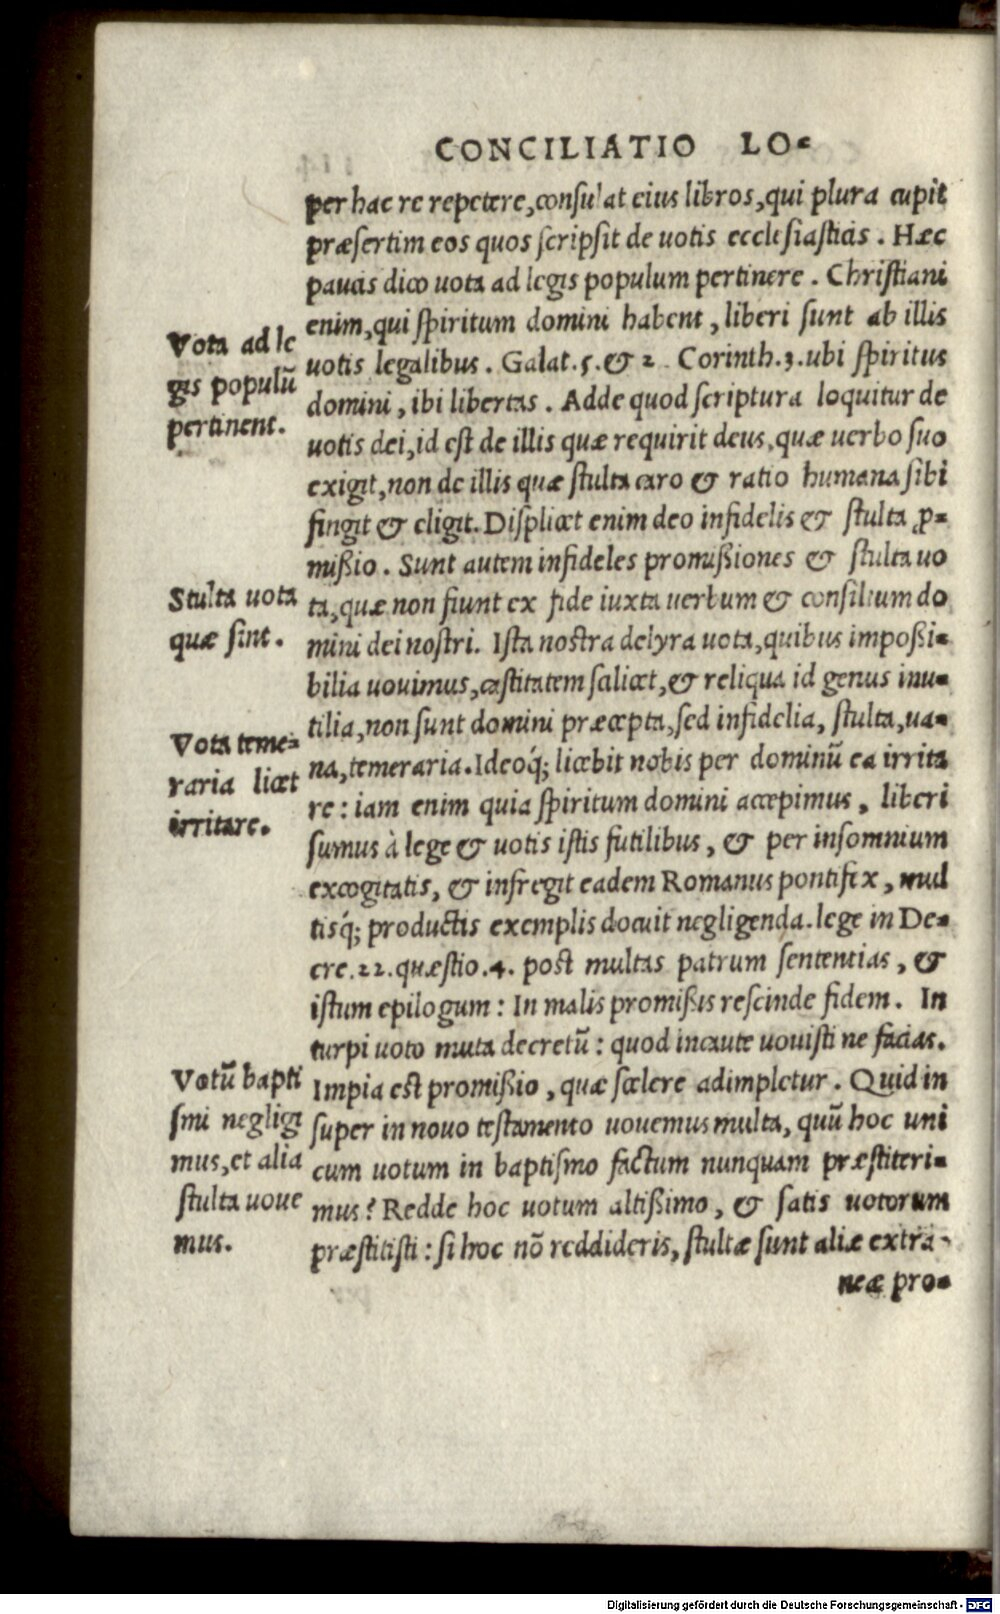 CONCILIATIO LO-
per hac re repetere, consulat eius libros, qui plura cupit
præsertim eos quos scripsit de uotis ecclesiasticis. Hæc
paucis dico uota ad legis populum pertinere. Christiani
enim, qui spiritum domini habent, liberi sunt ab illis
uotis legalibus. Galat.5. & 2 Corinth.3. ubi spiritus
domini, ibi libertas. Adde quod scriptura loquitur de
uotis dei, id est de illis quæ requirit deus, quæ uerbo suo
exigit, non de illis quæ stulta caro & ratio humana sibi
fingit & eligit. Displicet enim deo infidelis & stulta ꝓ-
mißio. Sunt autem infideles promißiones & stulta uo
ta, quæ non fiunt ex fide iuxta uerbum & consilium do
mini dei nostri. Ista nostra delyra uota, quibus impoßi-
bilia uouimus, castitatem scilicet, & reliqua id genus inu-
tilia, non sunt domini præcepta, sed infidelia, stulta, ua-
na, temeraria. Ideoq́; licebit nobis per dominũ ea irrita
re: iam enim quia spiritum domini accepimus, liberi
sumus à lege & uotis istis futilibus, & per insomnium
excogitatis, & infregit eadem Romanus pontifex, mul
tisq́; productis exemplis docuit negligenda. lege in De-
cre.22.quæstio.4. post multas patrum sententias, &
istum epilogum: In malis promißis rescinde fidem. In
turpi uoto muta decretũ: quod incaute uouisti ne facias.
Impia est promißio, quæ scelere adimpletur. Quid in
super in nouo testamento uouemus multa, quũ hoc uni
cum uotum in baptismo factum nunquam præstiteri-
mus? Redde hoc uotum altißimo, & satis uotorum
præstitisti: si hoc nõ reddideris, stultæ sunt aliæ extra-
neæ pro-
Vota ad le
gis populũ
pertinent.
Stulta uota
quæ sint.
Vota teme-
raria licet
irritare.
Votũ bapti
smi negligi
mus, et alia
stulta uoue
mus.
Digitalisierung gefördert durch die Deutsche Forschungsgemeinschaft - DFG